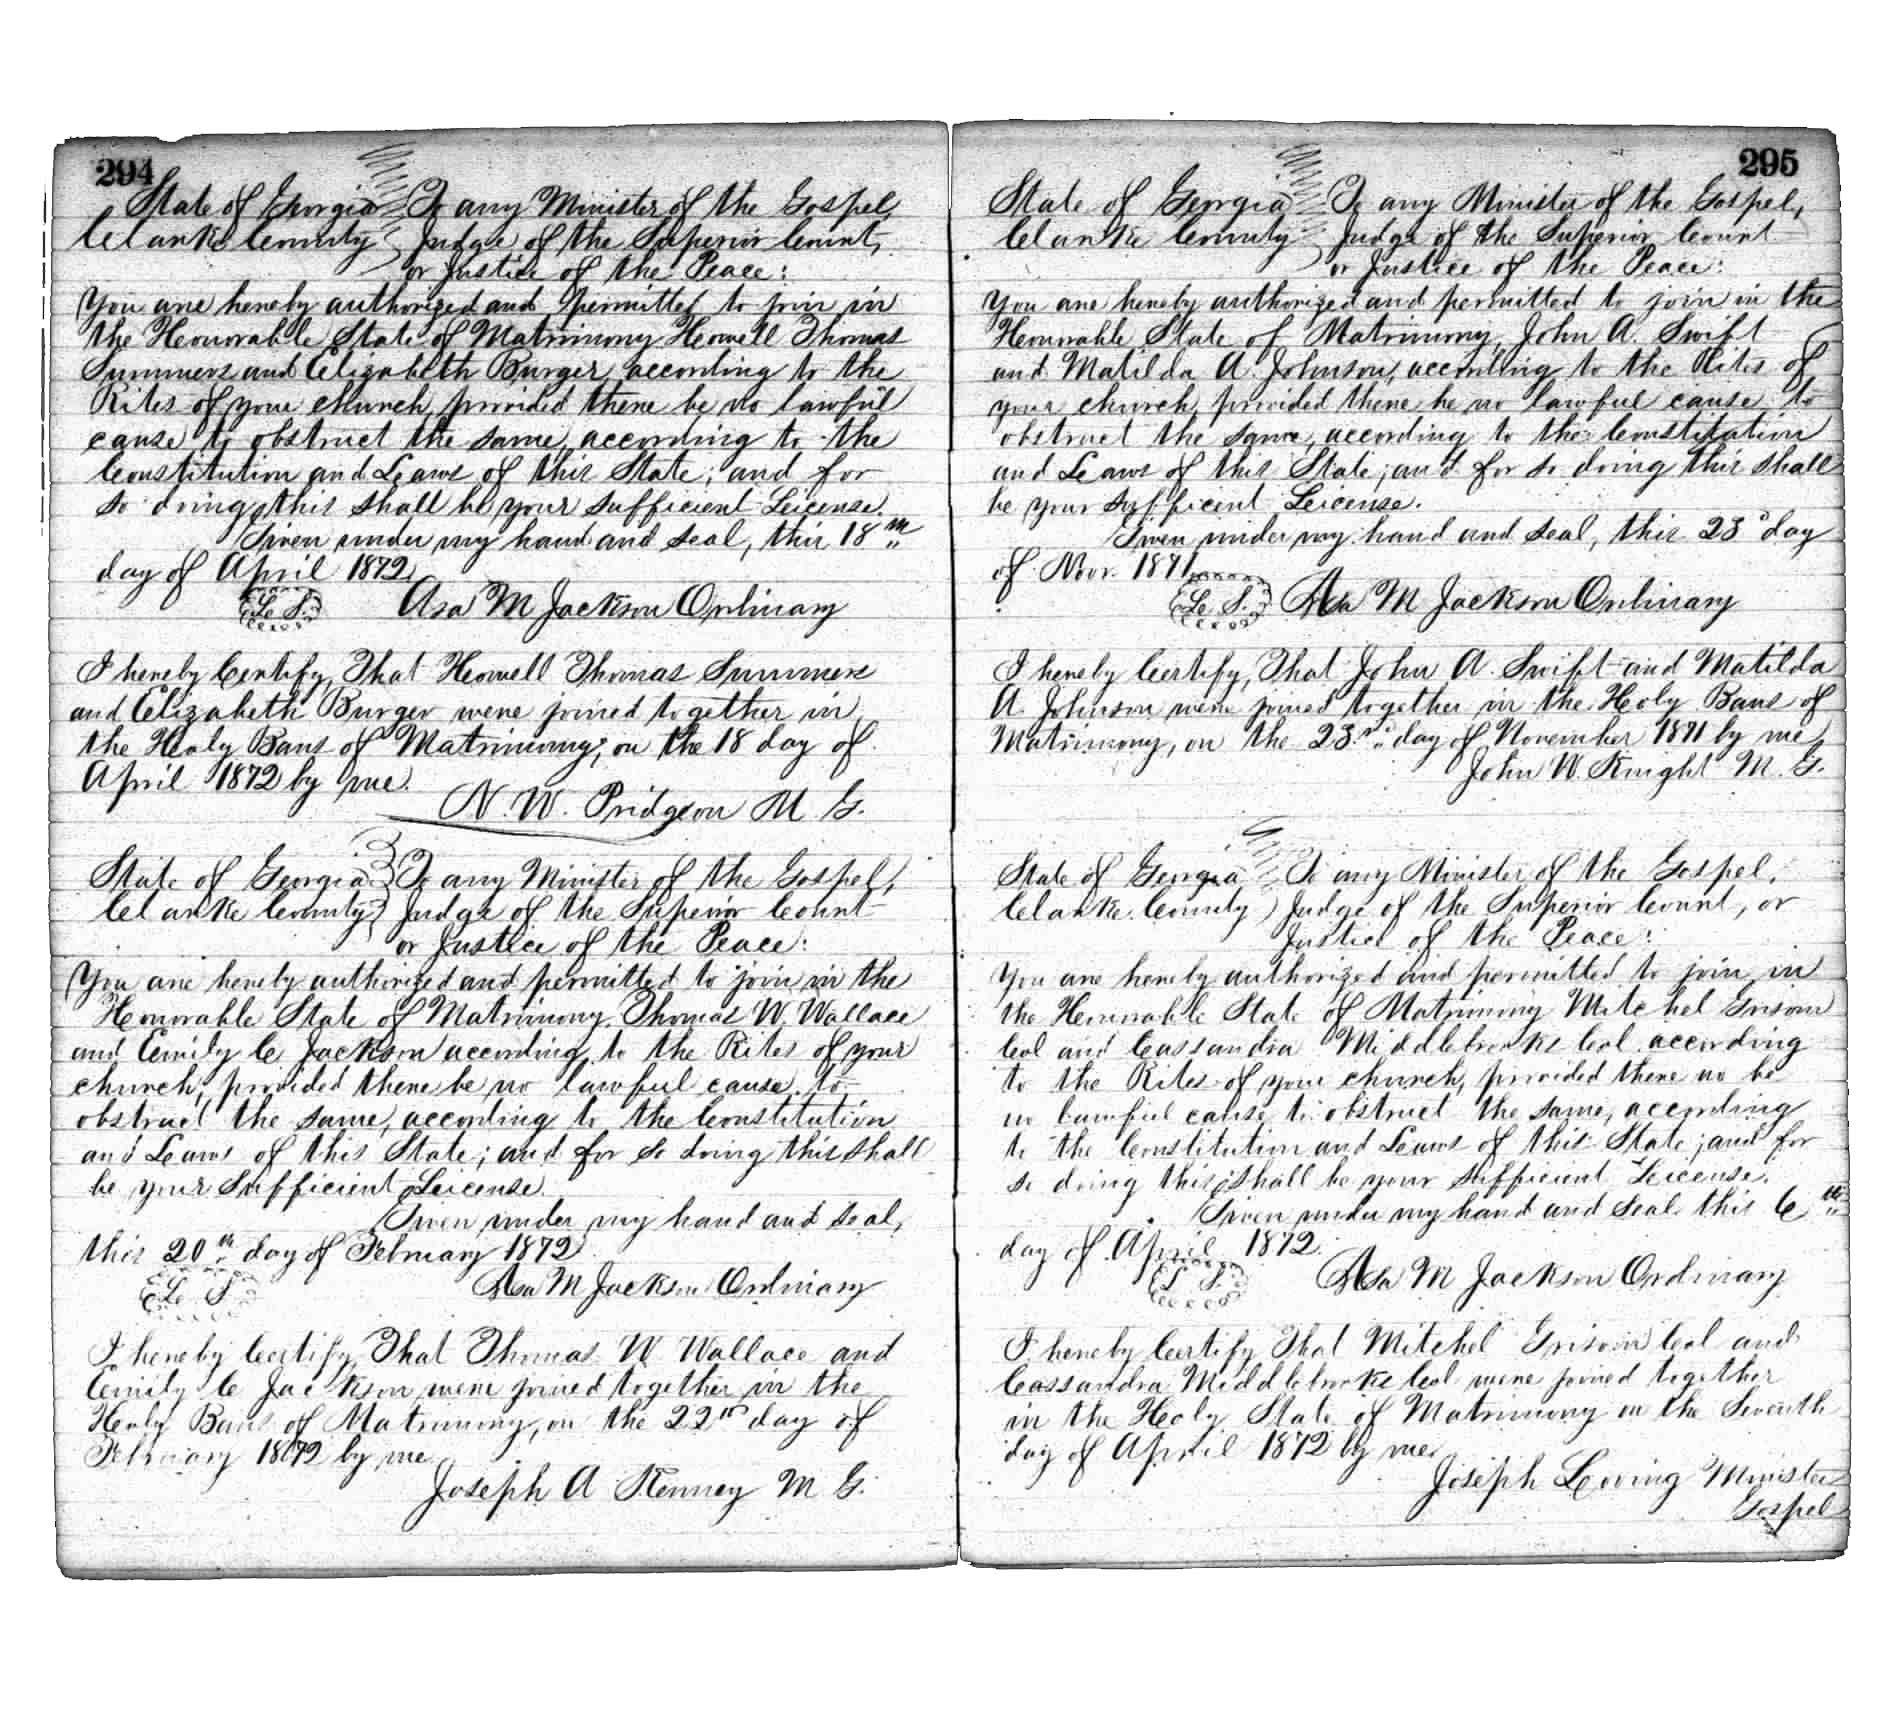 294
State of Georgia To any Minister of the Gospel,
Clarke County Judge of the Superior Court,
or Justice of the Peace:
You are hereby authorized and permitted to join in
the Honorable State of Matrimony Howell Thomas
Summers and Elizabeth Burger, according to the
Rites of your church, provided there be no lawful
cause to obstruct the same, according to the
Constitution and Laws of this State; and for
so doing this shall be your sufficient License.
Given under my hand and seal, this 18th
day of April 1872
L. S. Asa M Jackson Ordinary
I hereby Certify, That Howell Thomas Summers
and Elizabeth Burger were joined together in
the Holy Bans of Matrimony, on the 18 day of
April 1872 by me.
N. W. Pridgeon M. G.
State of Georgia To any Minister of the Gospel,
Clarke County Judge of the Superior Court
or Justice of the Peace:
You are hereby authorized and permitted to join in the
Honorable State of Matrimony, Thomas W. Wallace
and Emily C. Jackson according to the Rites of your
church, provided there be no lawful cause to
obstruct the same, according to the Constitution
and Laws of this State; and for so doing this shall
be your Sufficient License.
Given under my hand and seal,
this 20th day of February 1872
L. S. Asa M Jackson Ordinary
I hereby Certify, That Thomas W. Wallace and
Emily C Jackson were joined together in the
Holy Bans of Matrimony, on the 22nd day of
February 1872 by me
Joseph A Kenney M G.
295
State of Georgia To any Minister of the Gospel,
Clarke County Judge of the Superior Court
or Justice of the Peace:
You are hereby authorized and permitted to join in the
Honorable State of Matrimony, John A. Swift
and Matilda A. Johnson, according to the Rites of
your church, provided there be no lawful cause to
obstruct the same, according to the Constitution
and Laws of this State; and for so doing this shall
be your sufficient License.
Given under my hand and seal, this 23d day
of Novr. 1871
L. S. Asa M Jackson Ordinary
I hereby Certify, That John A. Swift and Matilda
A. Johnson were joined together in the Holy Bans of
Matrimony, on the 23rd day of November 1871 by me,
John W. Knight M. G.
State of Georgia To any Minister of the Gospel,
Clarke County Judge of the Superior Court, or
Justice of the Peace:
You are hereby authorized and permitted to join in
the Honorable State of Matrimony Mitchel Grisom
Col and Cassandra Middlebrooks Col according
to the Rites of your church, provided there no be
no lawful cause to obstruct the same, according
to the Constitution and Laws of this State; and for
so doing this shall be your sufficient License.
Given under my hand and seal this 6th
day of April 1872.
L S. Asa M Jackson Ordinary
I hereby Certify That Mitchel Grisom Col and
Cassandra Middlebrooks Col were joined together
in the Holy State of Matrimony on the Seventh
day of April 1872 by me
Joseph Loving Minister
Gospel